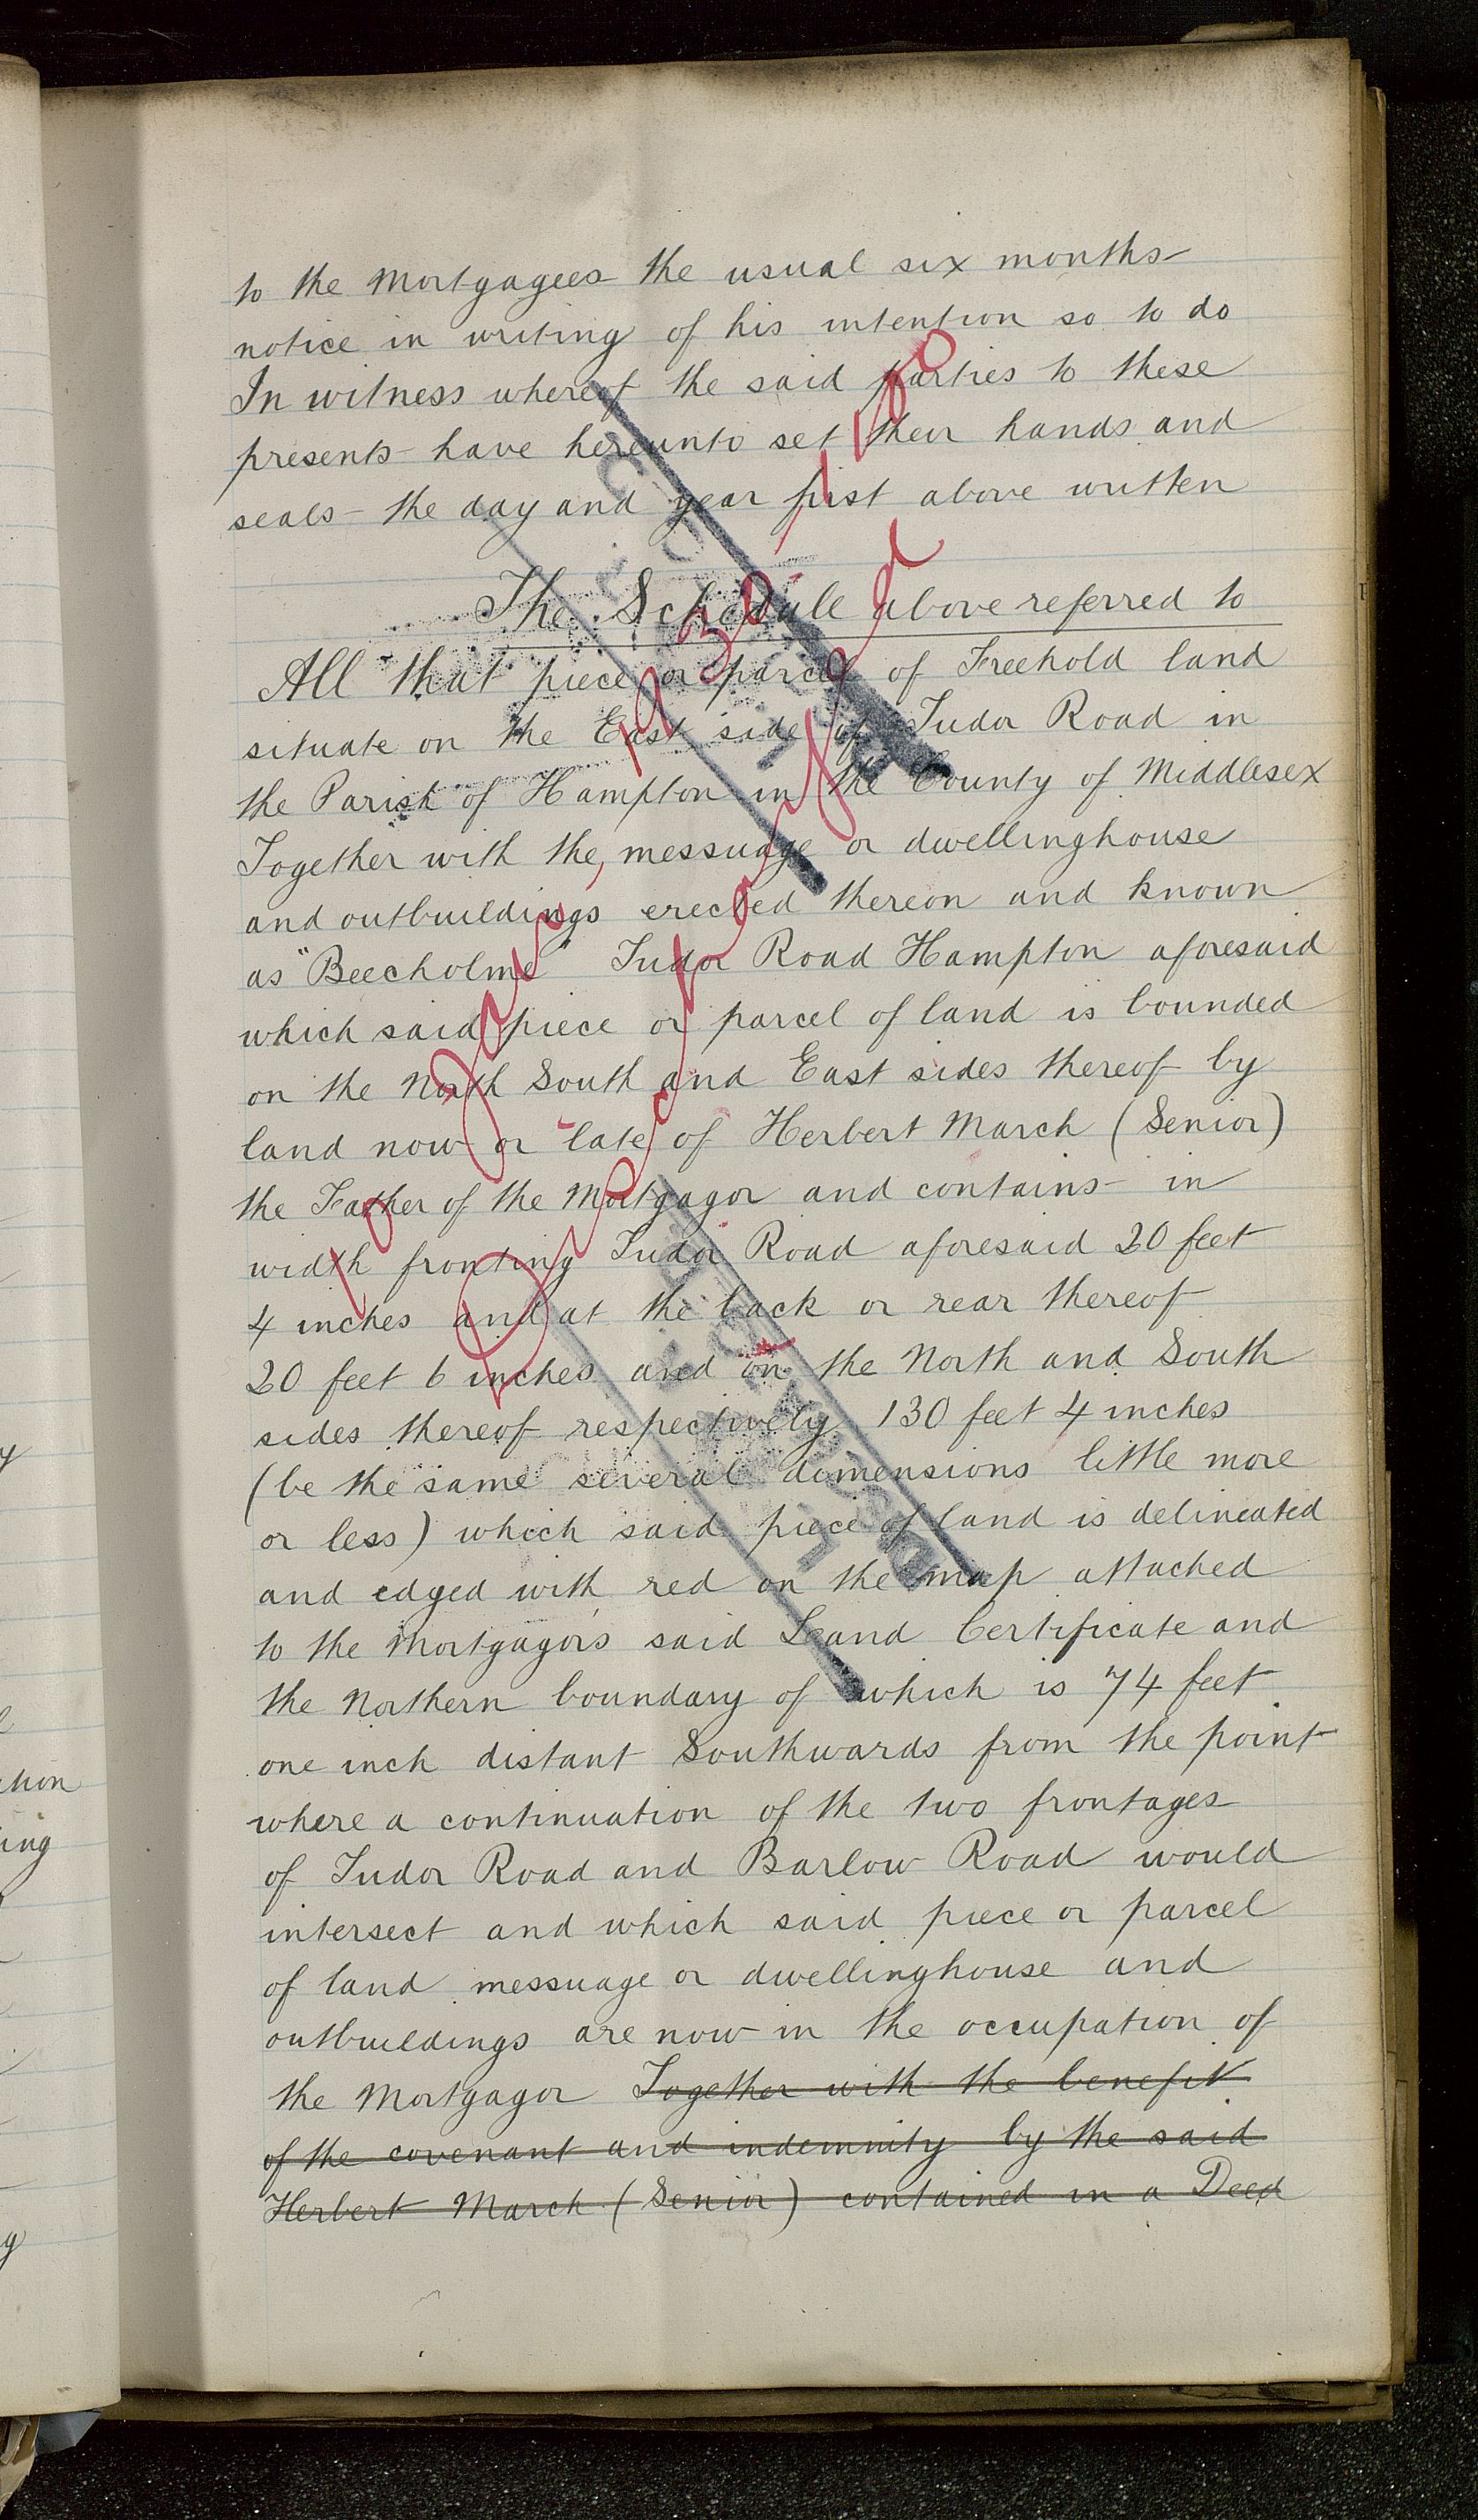 to the Mortgagees the usual six months
notice in writing of his intention so to do
In witness whereof the said parties to these
presents have hereunto set their hands and
seals the day and year first above written
The Schedule above referred to
All that piece or parcel of Freehold land
situate on the East side of Tudor Road in
the Parish of Hampton in the County of Middlesex
Together with the, messuage or dwellinghouse
and outbuildings erected thereon and known
as "Beecholme" Tudor Road Hampton aforesaid
which said piece or parcel of land is bounded
on the North South and East sides thereof by
land now or late of Herbert March (Senior)
the Father of the Mortgagor and contains in
width fronting Tudor Road aforesaid 20 feet
4 inches and at the back or rear thereof
20 feet 6 inches and on the North and South
sides thereof respectively 130 feet 4 inches
(be the same several dimensions little more
or less) which said piece of land is delineated
and edged with red on the map attached
to the Mortgagors said Land Certificate and
the Northern boundary of which is 74 feet
one inch distant Southwards from the point
where a continuation of the two frontages
of Tudor Road and Barlow Road would
intersect and which said piece or parcel
of land messuage or dwellinghouse and
outbuildings are now in the occupation of
the Mortgagor Together with the benefit
of the covenant and indemnity by the said
Herbert March (Senior) contained in a Deed
Discharged